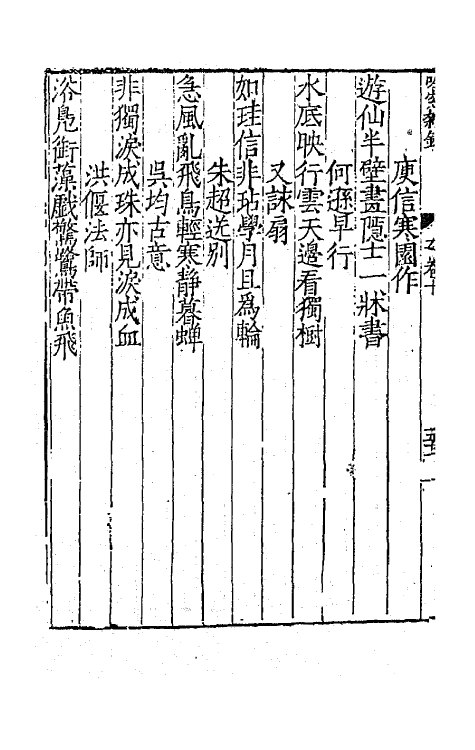 庾信寒園作
遊仙半壁畫隱士一牀書
何遜早行
水底映行雲天邊看獨樹
又詠扇
如珪信非玷學月且為輪
朱超送別
急風亂飛鳥輕寒静暮蟬
吳均古意
非獨淚成珠亦見淚成血
洪偃法師
浴鳧銜藻戲驚鷺帶魚飛